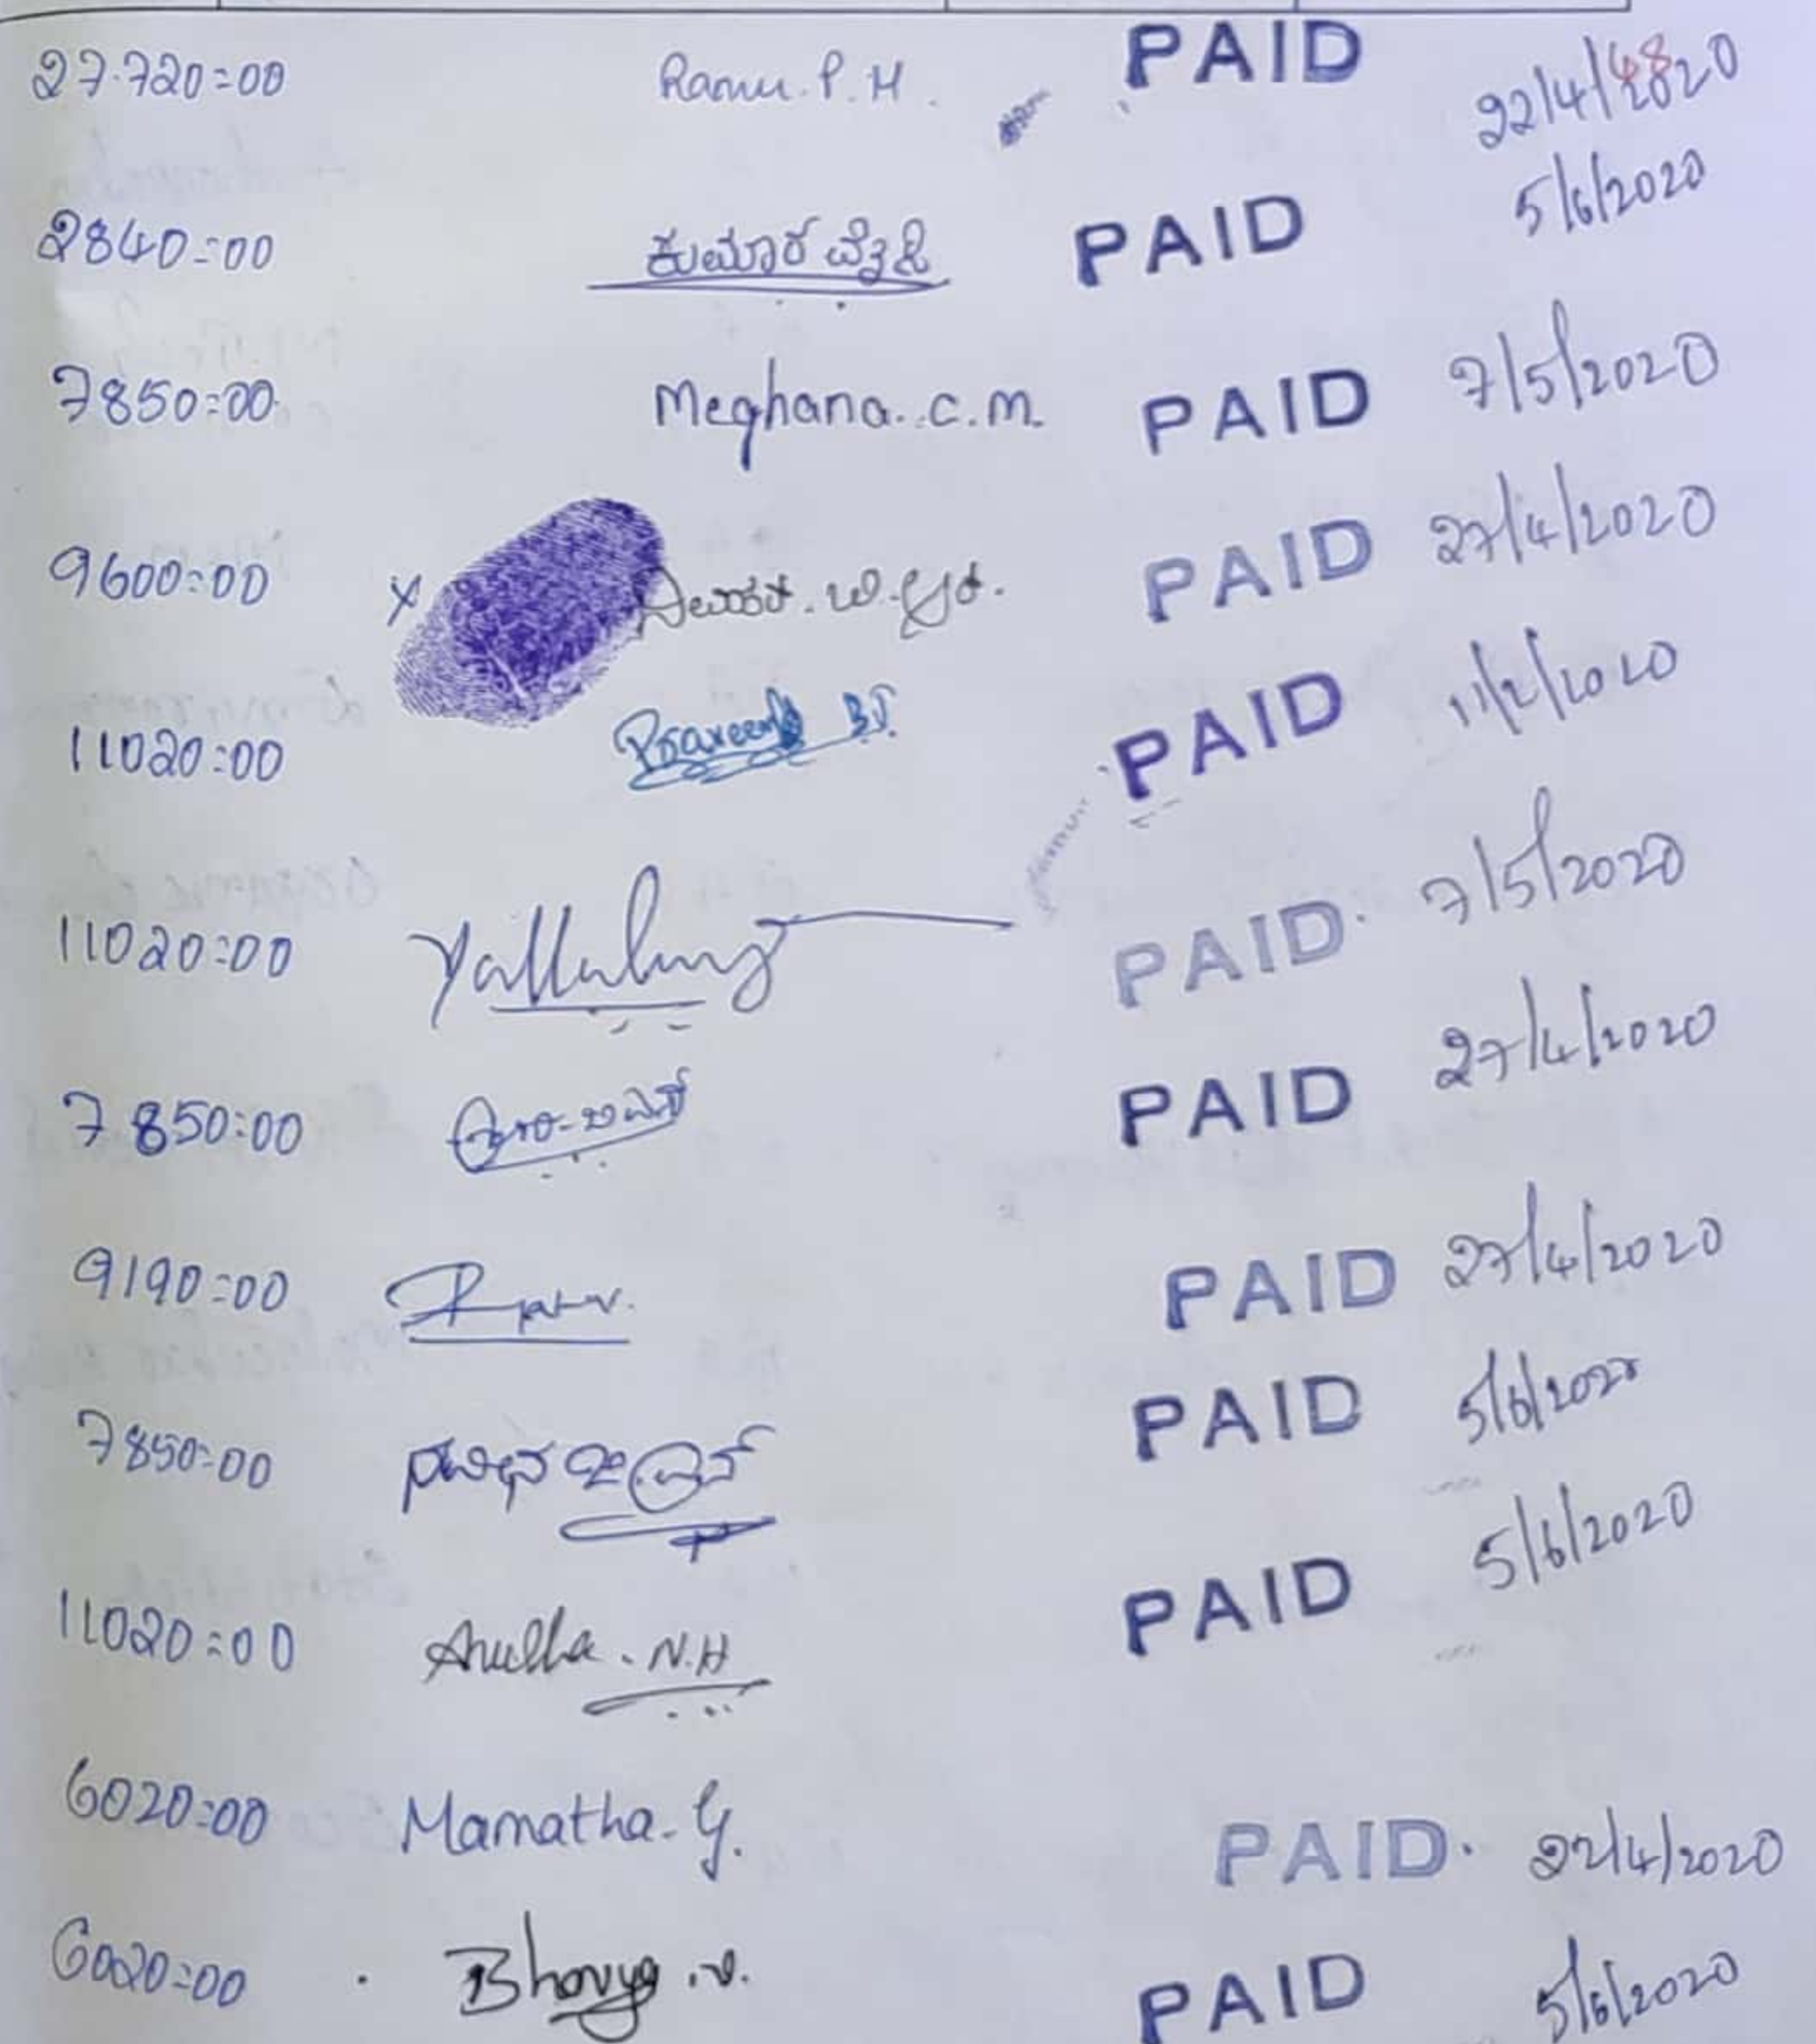 27.720=00 Ramu. P. H. PAID 22/4/2020
2840=00 ಕುಮಾರ PAID 5/6/2020
7850=00 Meghana. C. M. PAID 7/5/2020
9600=00 x PAID 27/4/2020
11020=00 Praveen B.J. PAID 11/2/2020
11020=00 PAID 7/5/2020
7850=00 PAID 27/4/2020
9190=00 PAID 27/4/2020
7850=00 PAID 5/6/2020
11020=00 N.H PAID 5/6/2020
6020=00 Mamatha. G. PAID 22/4/2020
6020=00 Bhavya .V. PAID 5/6/2020